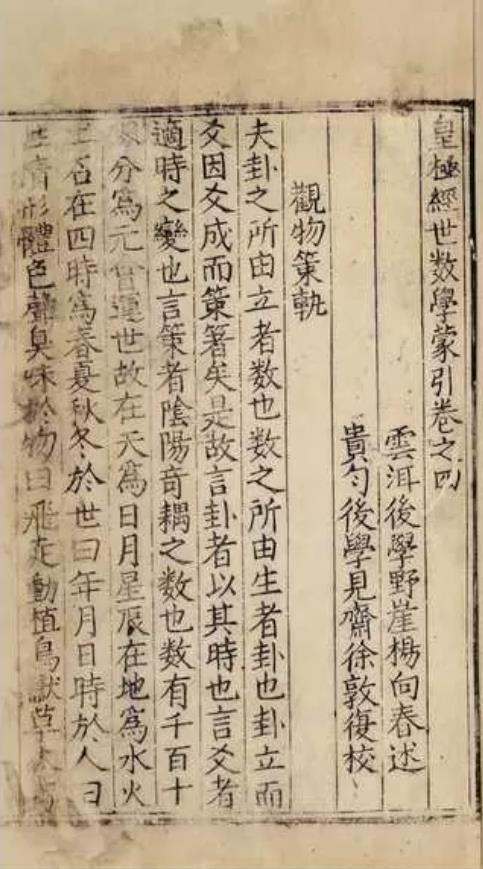 皇極經世数學蒙引卷之四
雲洱後學野崖楊向春述
貴勻後學見齋徐敦復校
觀物策軌
夫卦之所由立者数也数之所由生者卦也卦立而
爻因爻成而策箸矣是故言卦者以其時也言爻者
適時之變也言策者陰陽竒耦之数也数有千百十
分爲元會運世故在天爲日月星辰在地爲水火
石在四時爲春夏秋冬於世曰年月日時於人曰
情形體色聲臭味於物曰飛走動植鳥獸草木